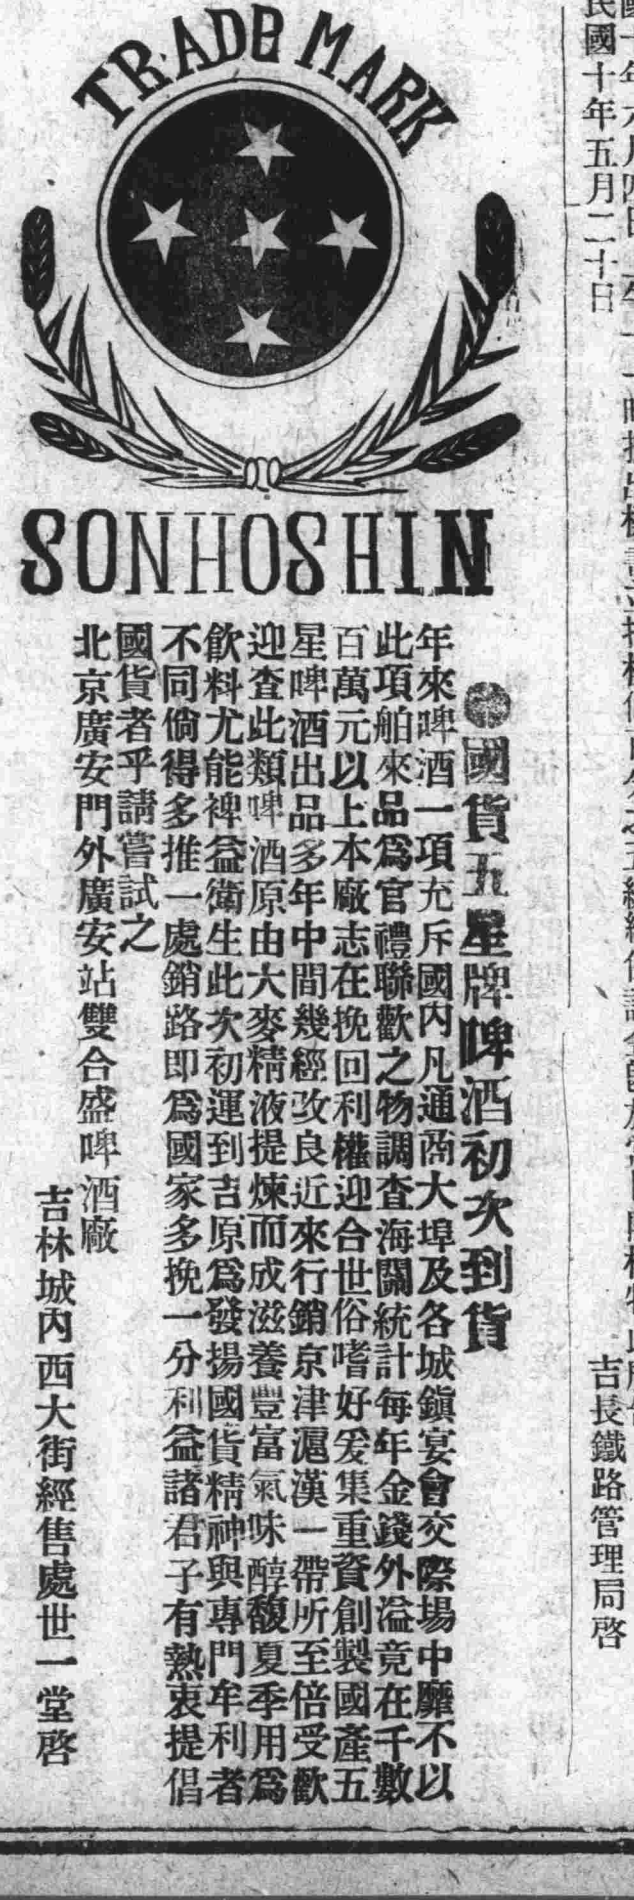 TRADE MARK
SONHOSHIN
國貨五星牌啤酒初次到貨
年來啤酒一項充斥國內凡通商大埠及各城鎮宴會交際場中靡不以
此項舶來品爲官禮聯歡之物調查海關統計每年金錢外溢竟在千數
百萬元以上本廠志在挽回利權迎合世俗嗜好爰集重資創製國產五
星啤酒出品多年中間幾經改良近來行銷京津滬漢一帶所至倍受歡
迎查此類啤酒原由大麥精液提煉而成滋養豐富氣味醇馥夏季用爲
飲料尤能裨益衛生此次初運到吉原爲發揚國貨精神與專門牟利者
不同倘得多推一處銷路即爲國家多挽一分利益諸君子有熱衷提倡
國貨者乎請嘗試之
北京廣安門外廣安站雙合盛啤酒廠
吉林城內西大街經售處世一堂啓
民國十年五月二十日
吉長鐵路管理局啓